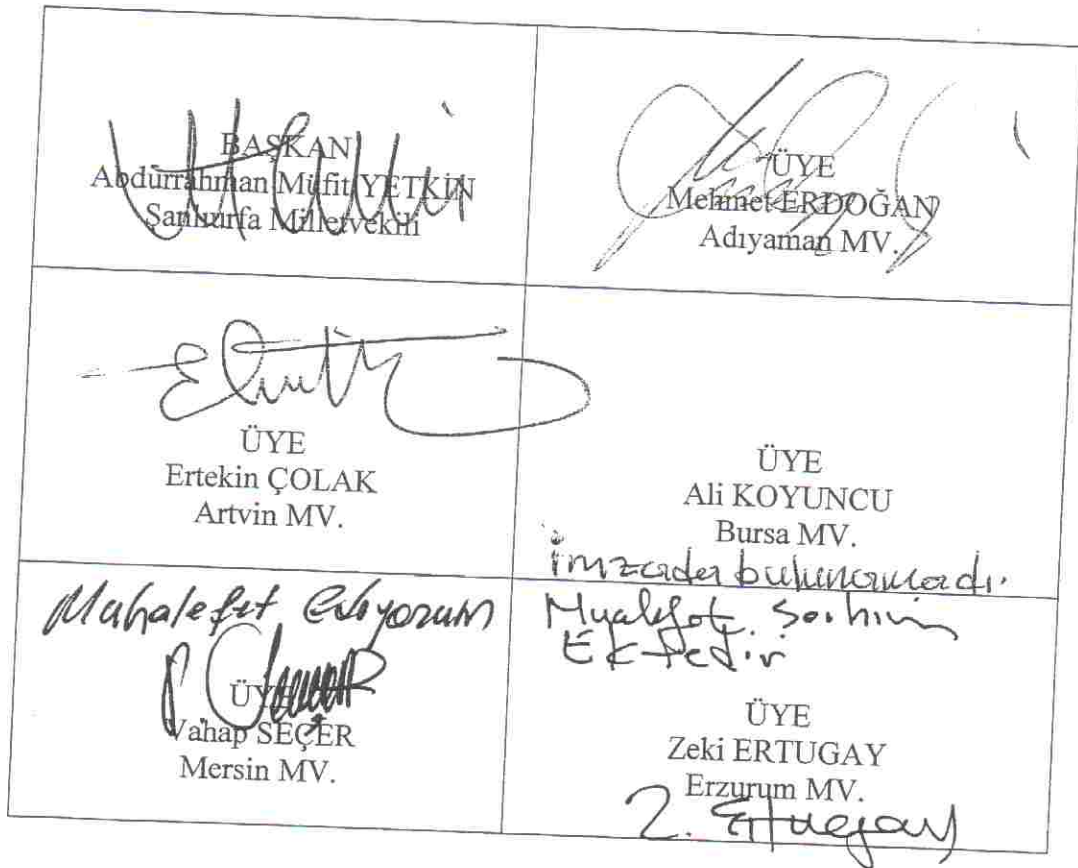 BAŞKAN
Abdurrahman Müfit YETKİN
Şanlıurfa Milletvekili
ÜYE
Mehmet ERDOĞAN
Adıyaman MV.
ÜYE
Ertekin ÇOLAK
Artvin MV.
ÜYE
Ali KOYUNCU
Bursa MV.
imzada bulunamadı.
Muhalefet ediyorum
ÜYE
Vahap SEÇER
Mersin MV.
Ektedir
ÜYE
Zeki ERTUGAY
Erzurum MV.
Z. Ertugay